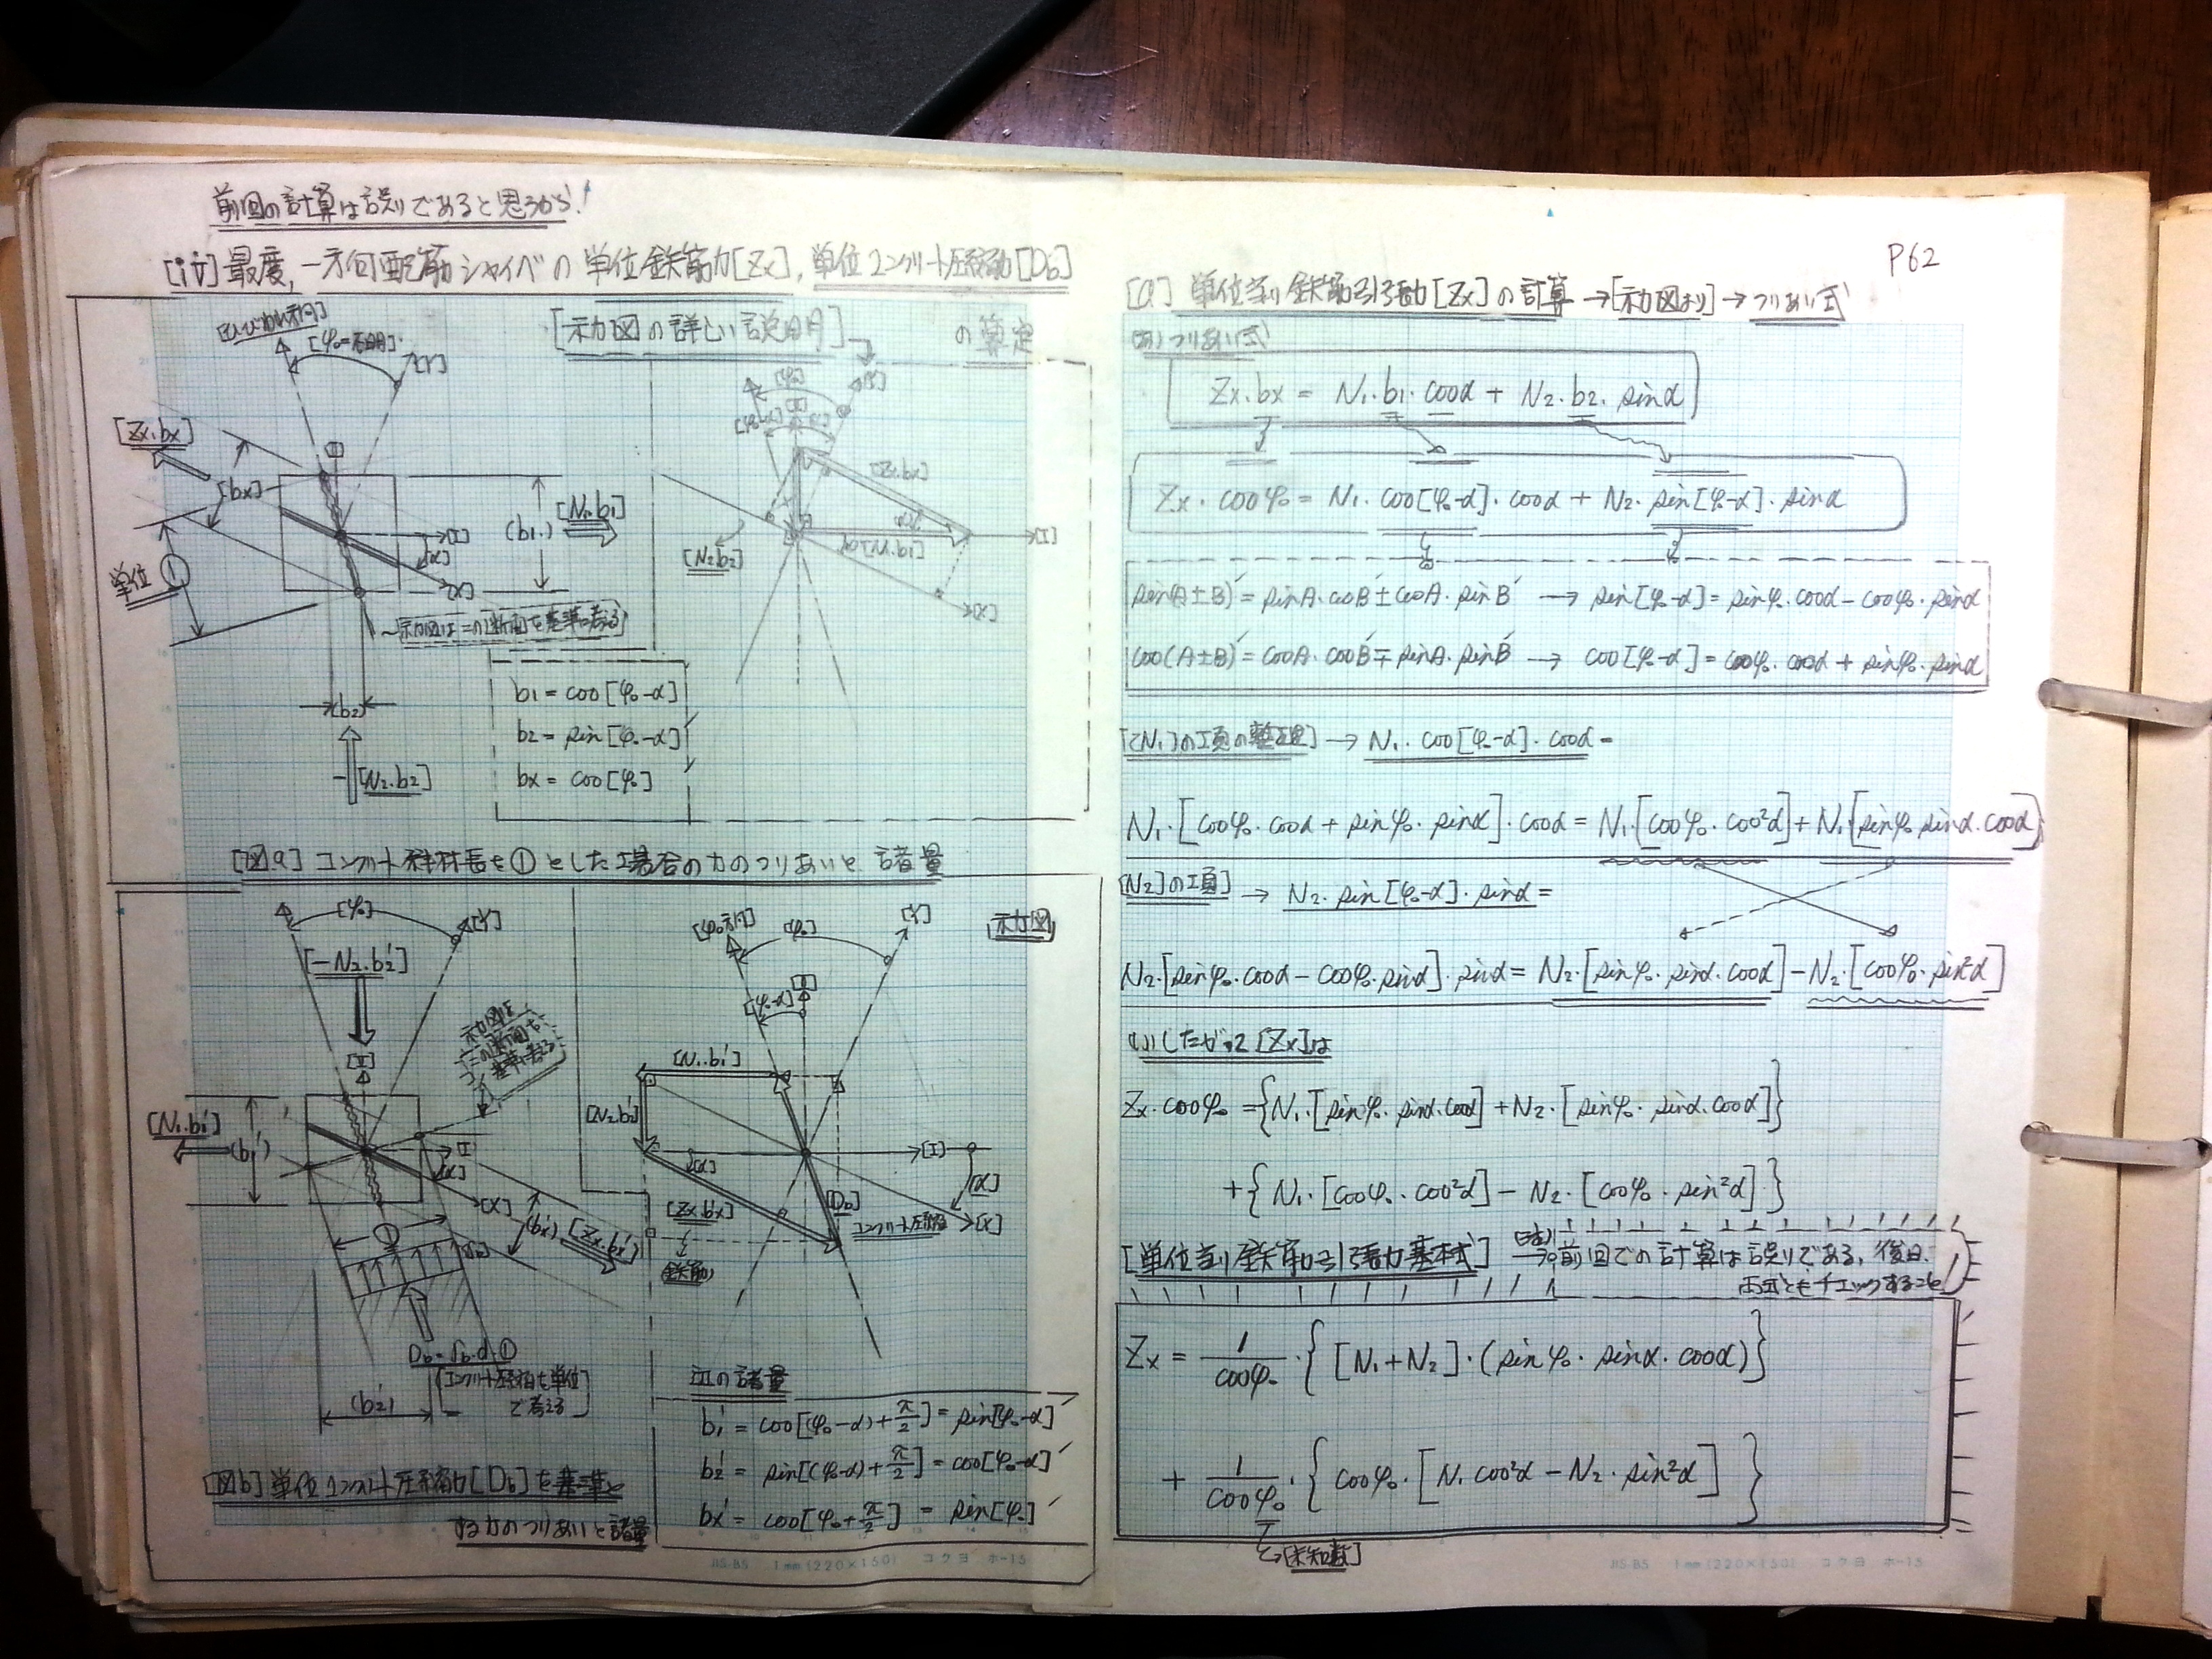 前回の計算は誤りであると思うから!
[iv] 最度, 一方向配筋シャイベの単位鉄筋力[Zx], 単位コンクリート圧縮力[Db]
の算定
[示力図の詳しい説明]
[ひびわれ方向]
[φ₀=不明]
[Y]
[Zx·bx]
[bx]
単位 ①
[I]
[α]
[X]
(b1.)
[N1·b1]
~示力図はこの断面を基準に考える
(b2)
[N2·b2]
b1 = cos[φ₀-α]
b2 = sin[φ₀-α]
bx = cos[φ₀]
[φ₀]
[Y]
[Zx·bx]
[N2·b2]
[N1·b1]
[I]
[X]
[図.a] コンクリート斜材長を①とした場合の力のつりあいと諸量
[φ₀]
[Y]
[-N2·b2']
[II]
示力図は
この断面を
基準に考える
[N1·b1']
(b1')
[I]
[α]
[X]
(bx')
[Zx·bx']
①
(b2')
[コンクリート圧縮を単位
で考える]
[図b] 単位コンクリート圧縮力[Db]を基準と
する力のつりあいと諸量
示力図
[φ₀方向]
[φ₀]
[Y]
[φ₀-α]
[N1·b1']
[N2·b2']
[I]
[α]
[α]
[Zx·bx']
鉄筋
[Db]
コンクリート圧縮
[X]
の諸量
b1' = cos[(φ₀-α)+π/2] = sin[φ₀-α]
b2' = sin[(φ₀-α)+π/2] = cos[φ₀-α]
bx' = cos[φ₀+π/2] = sin[φ₀]
JIS-B5 1mm(220×150) コクヨ ホ-15
P62
[a] 単位当り鉄筋引張力[Zx]の計算→[示力図より]→つりあい式
つりあい式
Zx·bx = N1·b1·cosα + N2·b2·sinα
Zx·cosφ₀ = N1·cos[φ₀-α]·cosα + N2·sin[φ₀-α]·sinα
sin(A±B) = sinA·cosB ± cosA·sinB → sin[φ₀-α] = sinφ₀·cosα - cosφ₀·sinα
cos(A±B) = cosA·cosB ∓ sinA·sinB → cos[φ₀-α] = cosφ₀·cosα + sinφ₀·sinα
[N1]の項の整理] → N1·cos[φ₀-α]·cosα =
N1·[cosφ₀·cosα + sinφ₀·sinα]·cosα = N1·[cosφ₀·cos²α] + N1·[sinφ₀·sinα·cosα]
[N2]の項] → N2·sin[φ₀-α]·sinα =
N2·[sinφ₀·cosα - cosφ₀·sinα]·sinα = N2·[sinφ₀·sinα·cosα] - N2·[cosφ₀·sin²α]
したがって[Zx]は
Zx·cosφ₀ = {N1·[sinφ₀·sinα·cosα] + N2·[sinφ₀·sinα·cosα]}
+ {N1·[cosφ₀·cos²α] - N2·[cosφ₀·sin²α]}
[単位当り鉄筋引張力基本式]
→前回での計算は誤りである, 後日.
両式ともチェックすること
Zx = 1/cosφ₀ · {[N1+N2]·(sinφ₀·sinα·cosα)}
+ 1/cosφ₀ · {cosφ₀·[N1 cos²α - N2·sin²α]}
→[未知数]
JIS-B5 1mm(220×150) コクヨ ホ-15